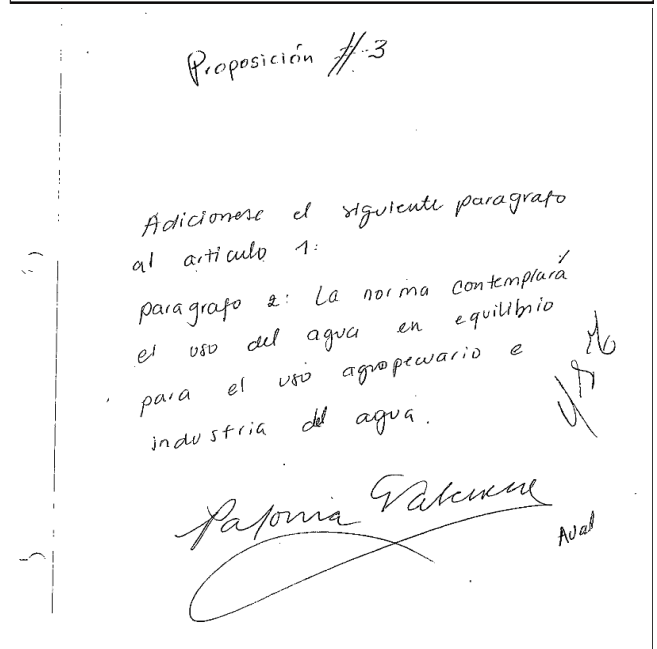 Proposición #3
Adicionese el siguiente paragrafo
al articulo 1:
paragrafo 2: La norma contemplará
el uso del agua en equilibrio
para el uso agropecuario e
industria del agua.
Aval